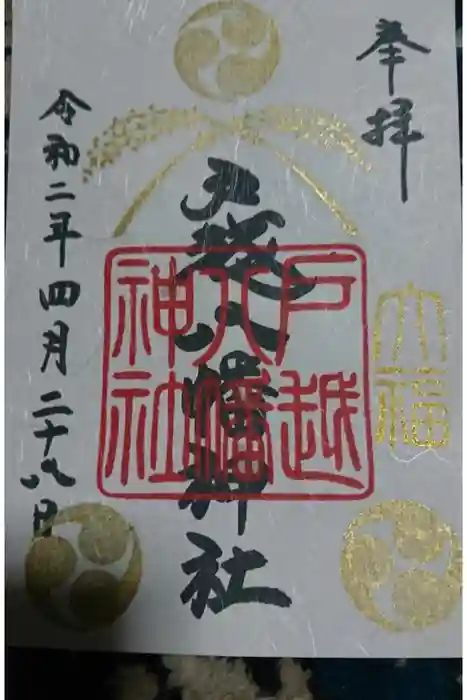 奉拝
大福
戸越八幡神社
戸越八幡神社
令和二年四月二十八日